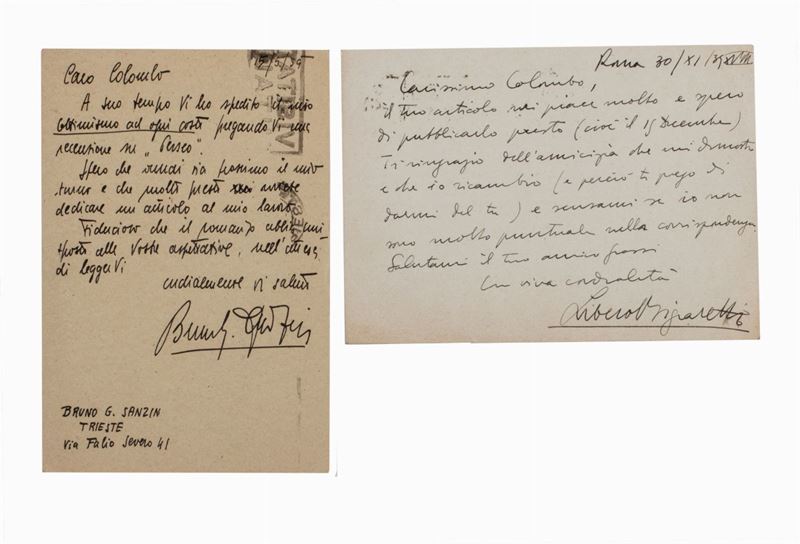 17/5/39
Caro Colombo
A suo tempo Vi ho spedito il mio
Ottimismo ad ogni costo pregandoVi una
recensione su „Perseo".
Spero che quindi sia prossimo il mio
turno e che molto presto vorrete
dedicare un articolo al mio lavoro.
Fiducioso che il romanzo abbia
risposto alle Vostre aspettative, nell'attesa
di leggerVi
cordialmente Vi saluto
BRUNO G. SANZIN
TRIESTE
Via Fabio Severo 41
Roma 30/XI/39 XVIII
Carissimo Colombo,
il tuo articolo mi piace molto e spero
di pubblicarlo presto (cioè il 15 Dicembre)
Ti ringrazio dell'amicizia che mi dimostri
e che io ricambio (e perciò ti prego di
darmi del tu) e scusami se io non
sono molto puntuale nella corrispondenza.
Salutami il tuo amico Grossi
Con viva cordialità
Libero Bigiaretti